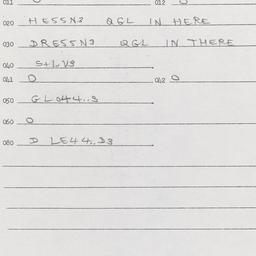 011 012
020 HESSN3 QGL IN HERE
030 DRESSN3 QGL IN THERE
040 S+L.V3
041 O 042 O
050 GL044..3
060 O
080 D LE44..D3